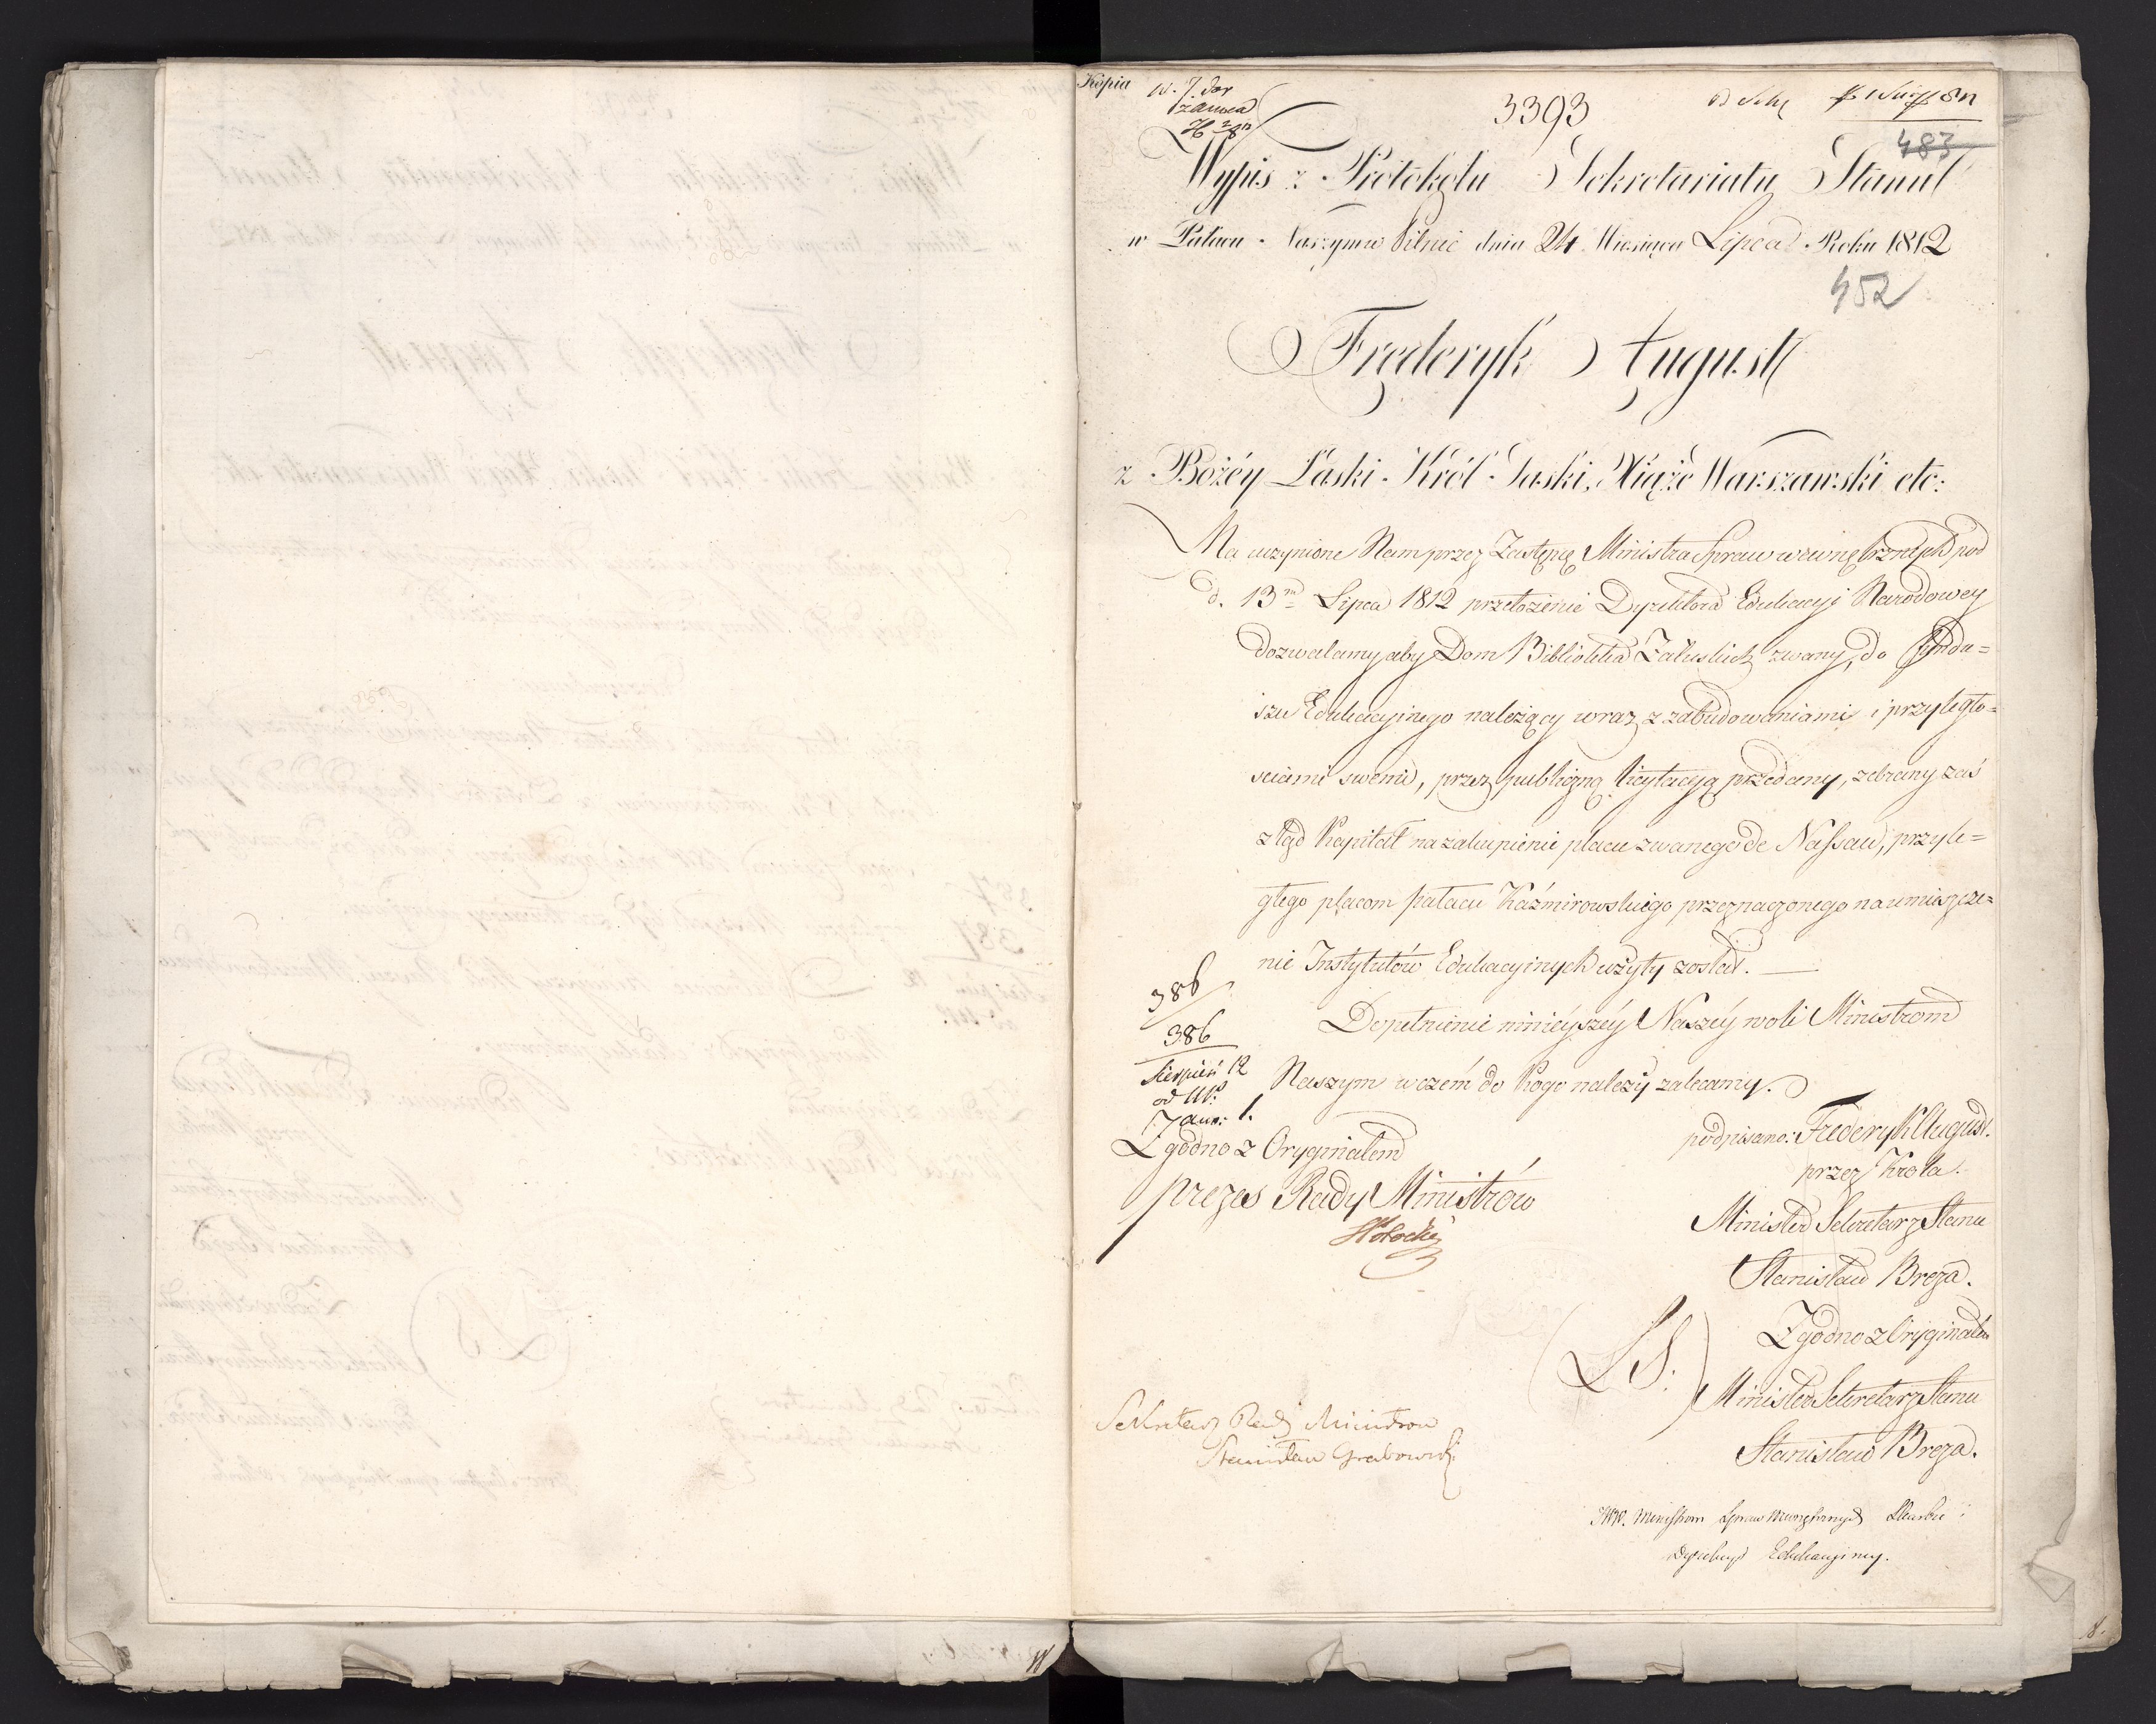 Kopia
3393
483
Wypis z Protokółu Sekretariatu Stanu
w Pałacu Naszym w Pilnic dnia 24 Miesiąca Lipca Roku 1812
452
Fryderyk August
z Bożéy Łaski Król Saski, Xiążę Warszawski etc:
Na uczynione Nam przez Zastępcę Ministra Spraw wewnętrznych pod
d. 13m Lipca 1812 przełożenie Dyrektora Edukacyi Narodowey
dozwalamy aby Dom Biblioteką Załuskich zwany, do fundu=
szu Edukacyinego należący wraz z zabudowaniami i przyległo=
sciami swemi, przez publiczną licytacyą przedany, zebrany zaś
ztąd Kapitał na zakupienie placu zwanego de Nassau, przyle=
głego placom pałacu Kaźmirowskiego przeznaczonego na umieszcze=
nie Instytutów Edukacyinych użyty został. —
386
386
Sierpień 12
Dopełnienie ninieyszéy Naszéy woli Ministrom
Naszym w czém do kogo należy zalecamy.
podpisano: Fryderyk August.
przez Króla.
Minister Sekretarz Stanu
Stanisław Breza.
Zgodno z Oryginałem
Prezes Rady Ministrów
Potocki
(LS:)
Zgodno z Oryginałem
Minister Sekretarz Stanu
Stanisław Breza.
Sekretarz Rady Ministrow
Stanisław Grabowski
JWW. Ministrom Spraw Wewnętrznych Skarbu i
Dyrekcyi Edukacyiney.